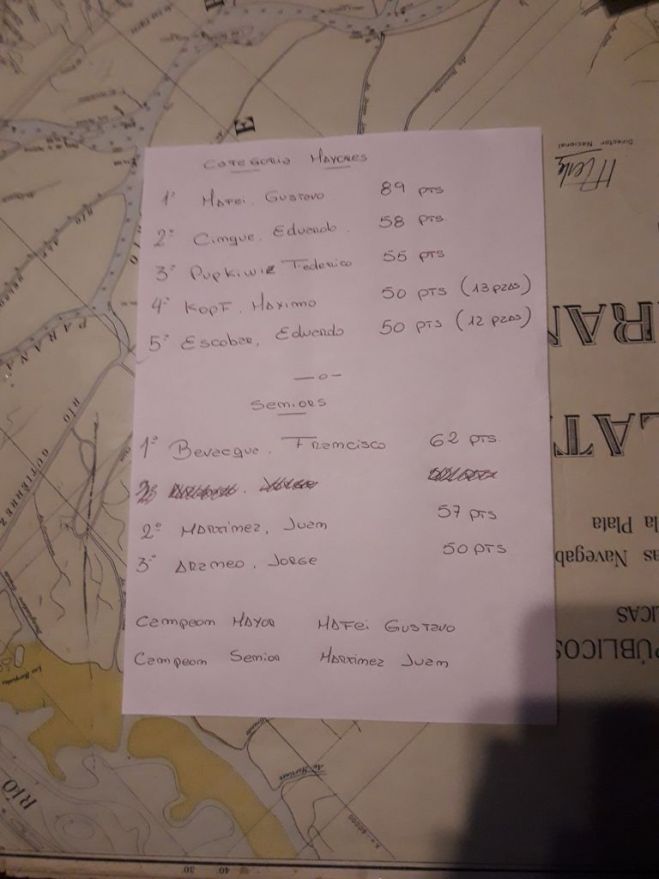 Categoria Mayores
1° Mafei, Gustavo 89 pts
2° Cingue, Eduardo. 58 pts
3° Pupkiwiz Federico 55 pts
4° Kopf, Maximo 50 pts (13 pzas)
5° Escobar, Eduardo 50 pts (12 pzas)
—o—
Seniors
1° Bevacque, Francisco 62 pts.
2° Martinez, Juan 57 pts
3° Arameo, Jorge 50 pts
Campeon Mayor Mafei Gustavo
Campeon Senior Martinez Juan
Director Nacional
la Plata
as Navegab
ICAS
PÚBLICOS
RÍO
PARANA
RÍO GUTIERREZ
E
RAN
LAT